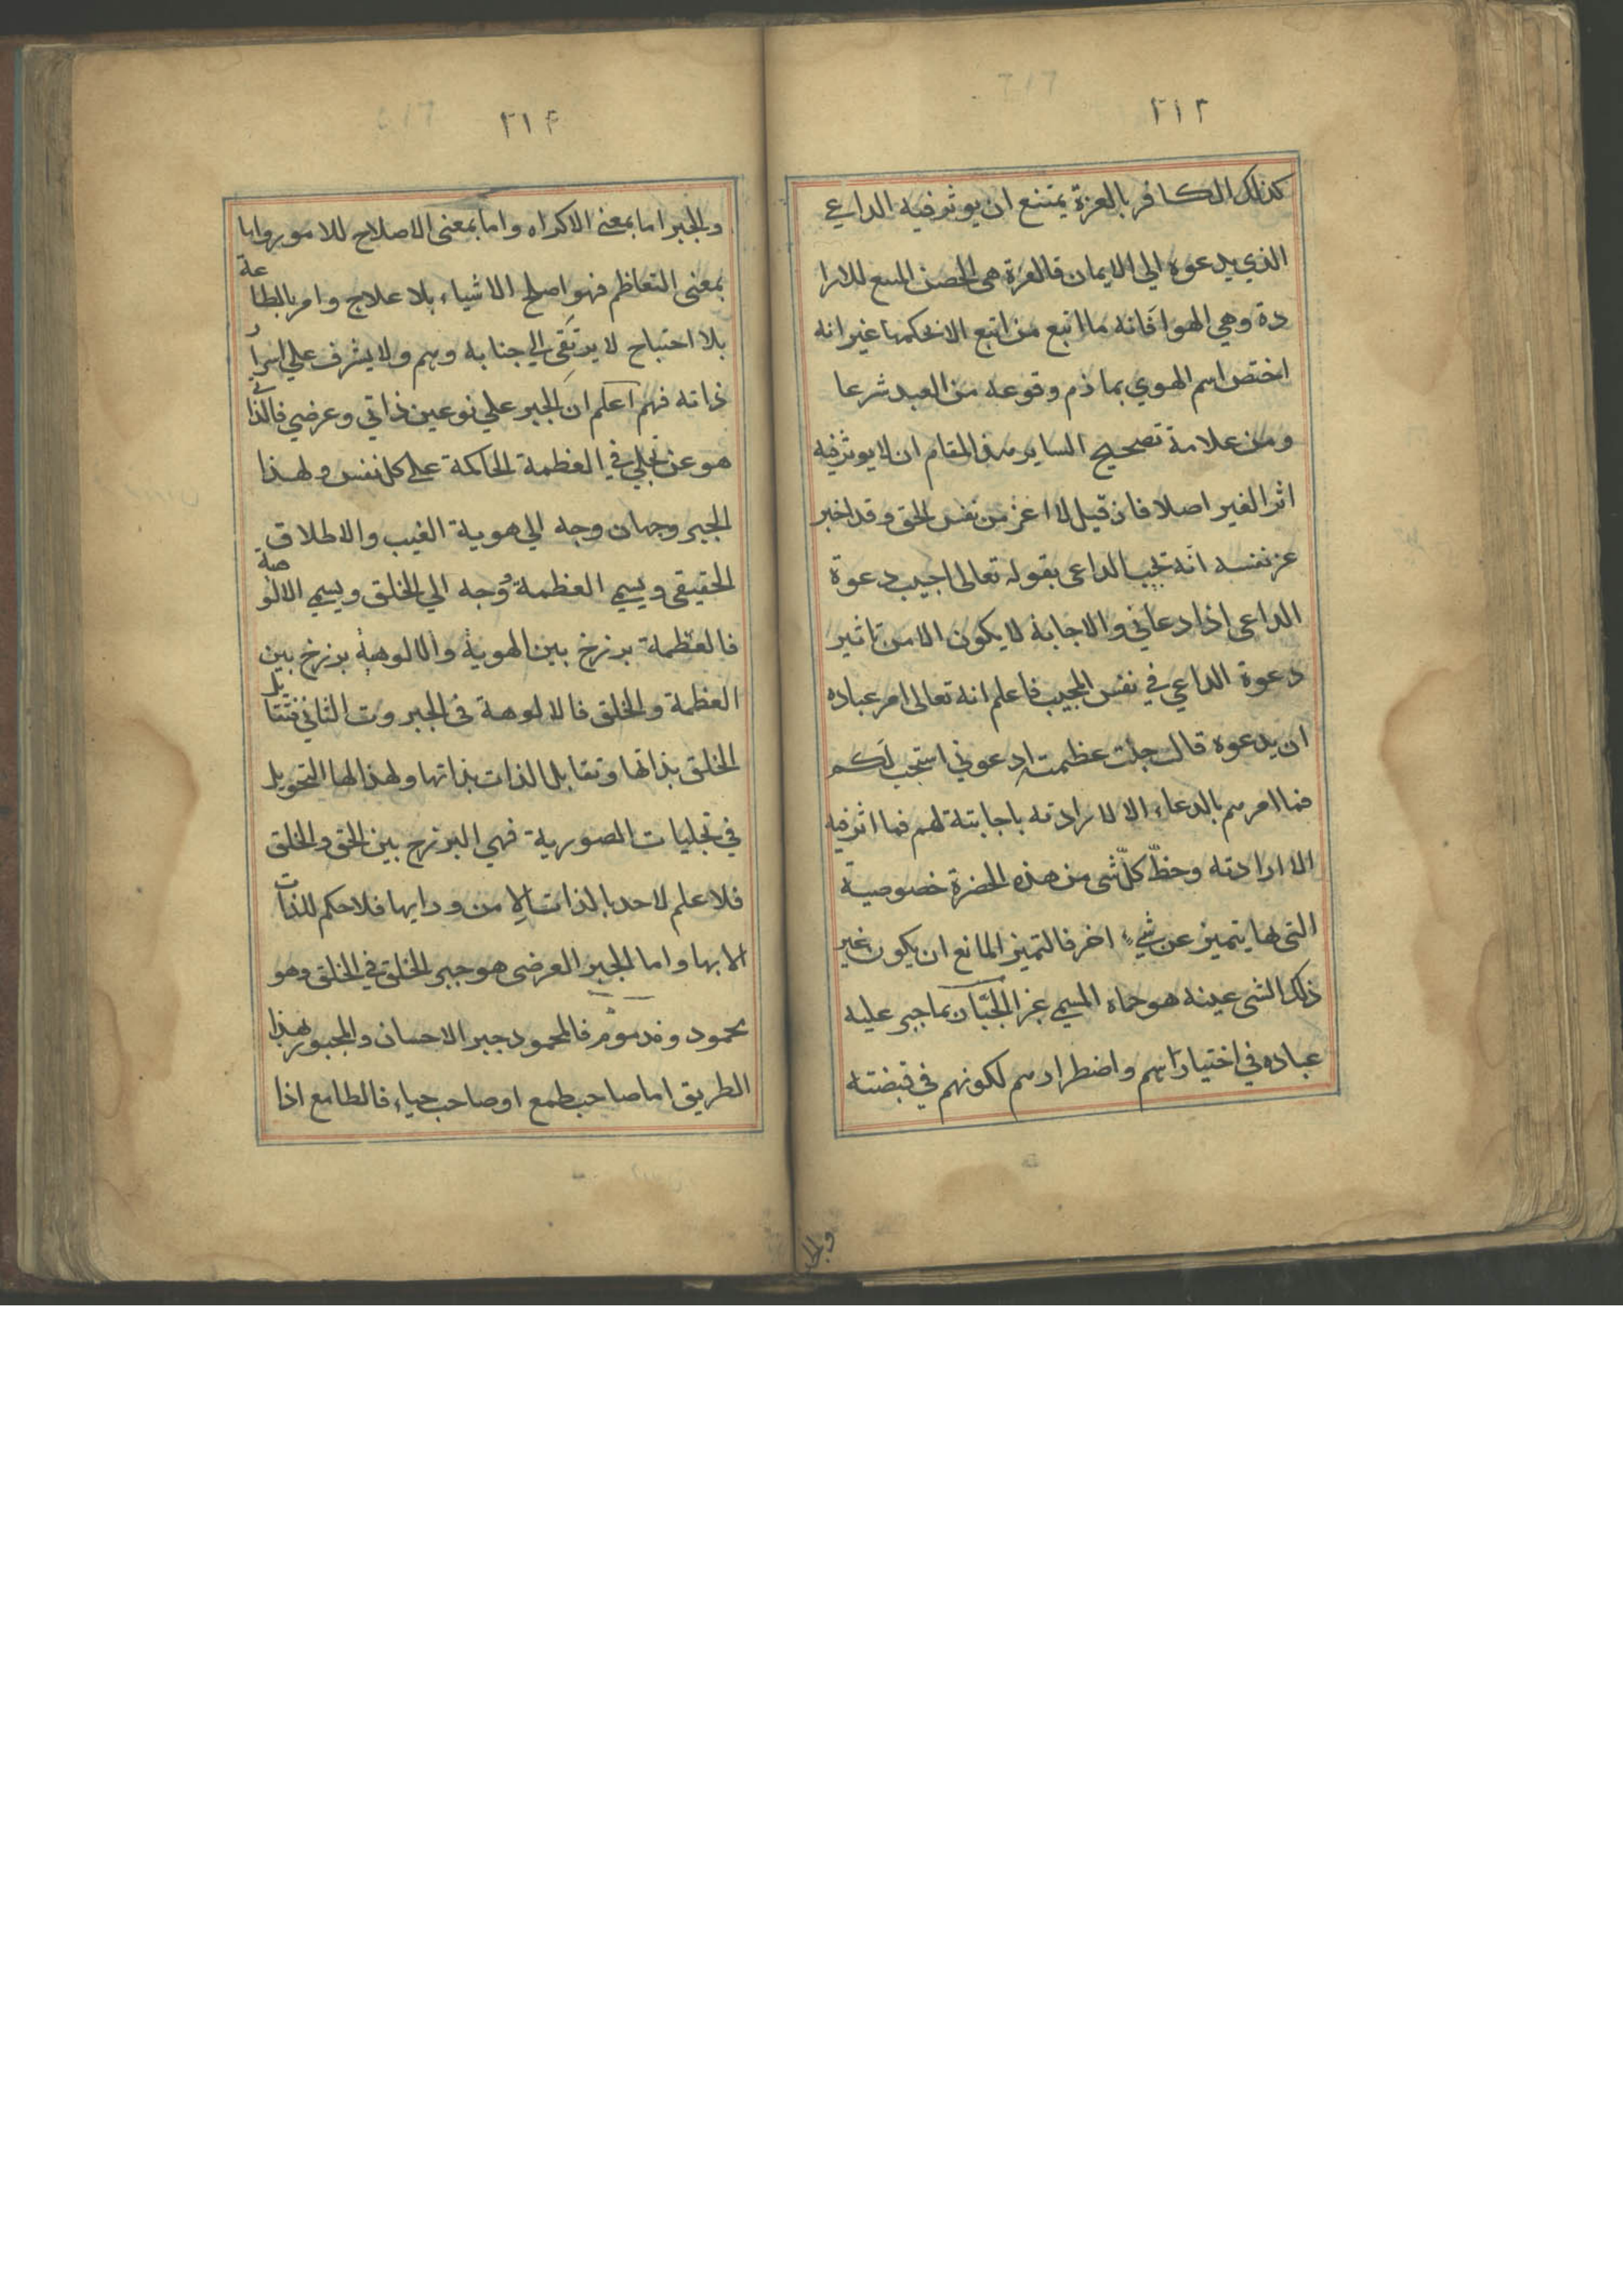 ٢١٣
كذلك الكافر بالعزة يمتنع ان يوثر فيه الداعي
الذي يدعوه الي الايمان فالعزة هي الحصن المنيع للارا
دة وهي الهوا فانه ما اتبع من اتبع الا بحكمها غير انه
اختص اسم الهوي بما ذم وقوعه من العبد شرعا
ومن علامة تصحيح الساير هذا المقام ان لا يوثر فيه
اثر الغير اصلا فان قيل لا اعز من نفس الحق وقد اخبر
عن نفسه انه يجيب الداعي بقوله تعالى اجيب دعوة
الداعي اذا دعاني والاجابة لا يكون الا من تاثير
دعوة الداعي في نفس المجيب فاعلم انه تعالى امر عباده
ان يدعوه قال جلت عظمته ادعوني استجب لكم
فما امرهم بالدعاء الا لارادته باجابته لهم فما اثر فيه
الا ارادته وحظّ كلّ شي من هذه الحضرة خصوصية
التي بها يتميز عن شيء اخر فالتميز المانع ان يكون غير
ذلك الشي عينه هو حماه المسمي عز الجبّار بما جبر عليه
عباده في اختيارهم واضطرارهم لكونهم في قبضته
والجبر
٢١٤
والجبر اما بمعني الاكراه واما بمعني الاصلاح للامور واما
بمعني التعاظم فهو اصلح الاشياء بلا علاج وامر بالطاعة
بلا احتياج لا يرتقي الي جنابه وهم ولا يشرف علي اسرار
ذاته فهم اعلم ان الجبر علي نوعين ذاتي وعرضي فالذاتي
هو عن تجلي في العظمة الحاكمة علي كل نفس ولهذا
الجبر وجهان وجه الي هوية الغيب والاطلاق
الحقيقي ويسمي العظمة ووجه الي الخلق ويسمي الالوهة
فالعظمة برزخ بين الهوية والالوهة برزخ بين
العظمة والخلق فالالوهة في الجبروت الثاني فتقابل
الخلق بذاتها وتقابل الذات بذاتها ولهذا لها التحويل
في تجليات الصورية فهي البرزخ بين الحق والخلق
فلا علم لاحد بالذات الا من ورايها فلا حكم للذات
الا بها واما الجبر العرضي هو جبر الخلق في الخلق وهو
محمود ومذموم فالمحمود جبر الاحسان والمجبور بهذا
الطريق اما صاحب طمع او صاحب حياء فالطامع اذا